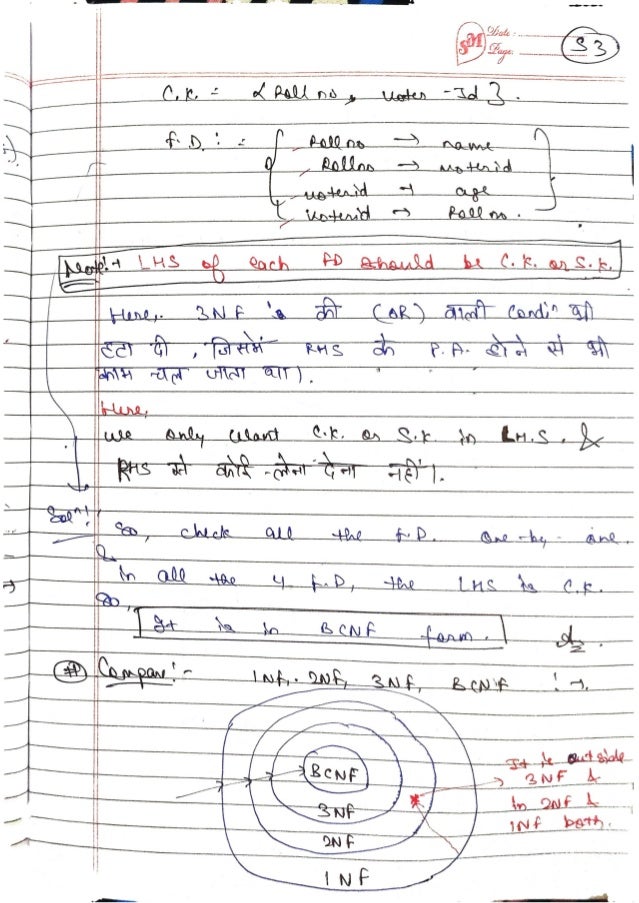 SM Date :
Page.
53
C.K. = { Roll no, voter-Id }.
F.D. : = { Roll no → name
Rollno → voterid
voterid → age
Voterid → Roll no. }
Note:→ LHS of each FD should be C.K. or S.K.
Here, 3NF की (OR) वाली condiⁿ भी
हटा दी , जिसमें RHS के P.A. होने से भी
काम चल जाता था ).
Here,
we only want C.K. or S.K. in LH.S. &
RHS से कोई लेना देना नहीं ।.
Solⁿ!
So, check all the F.D. one-by-one.
&
in all the 4 F.D, the LHS is C.K.
So,
It is in BCNF form.
# Compare!- 1NF, 2NF, 3NF, BCNF !→.
BCNF
3NF
2NF
1NF
It is outside
3NF &
in 2NF &
1NF both.